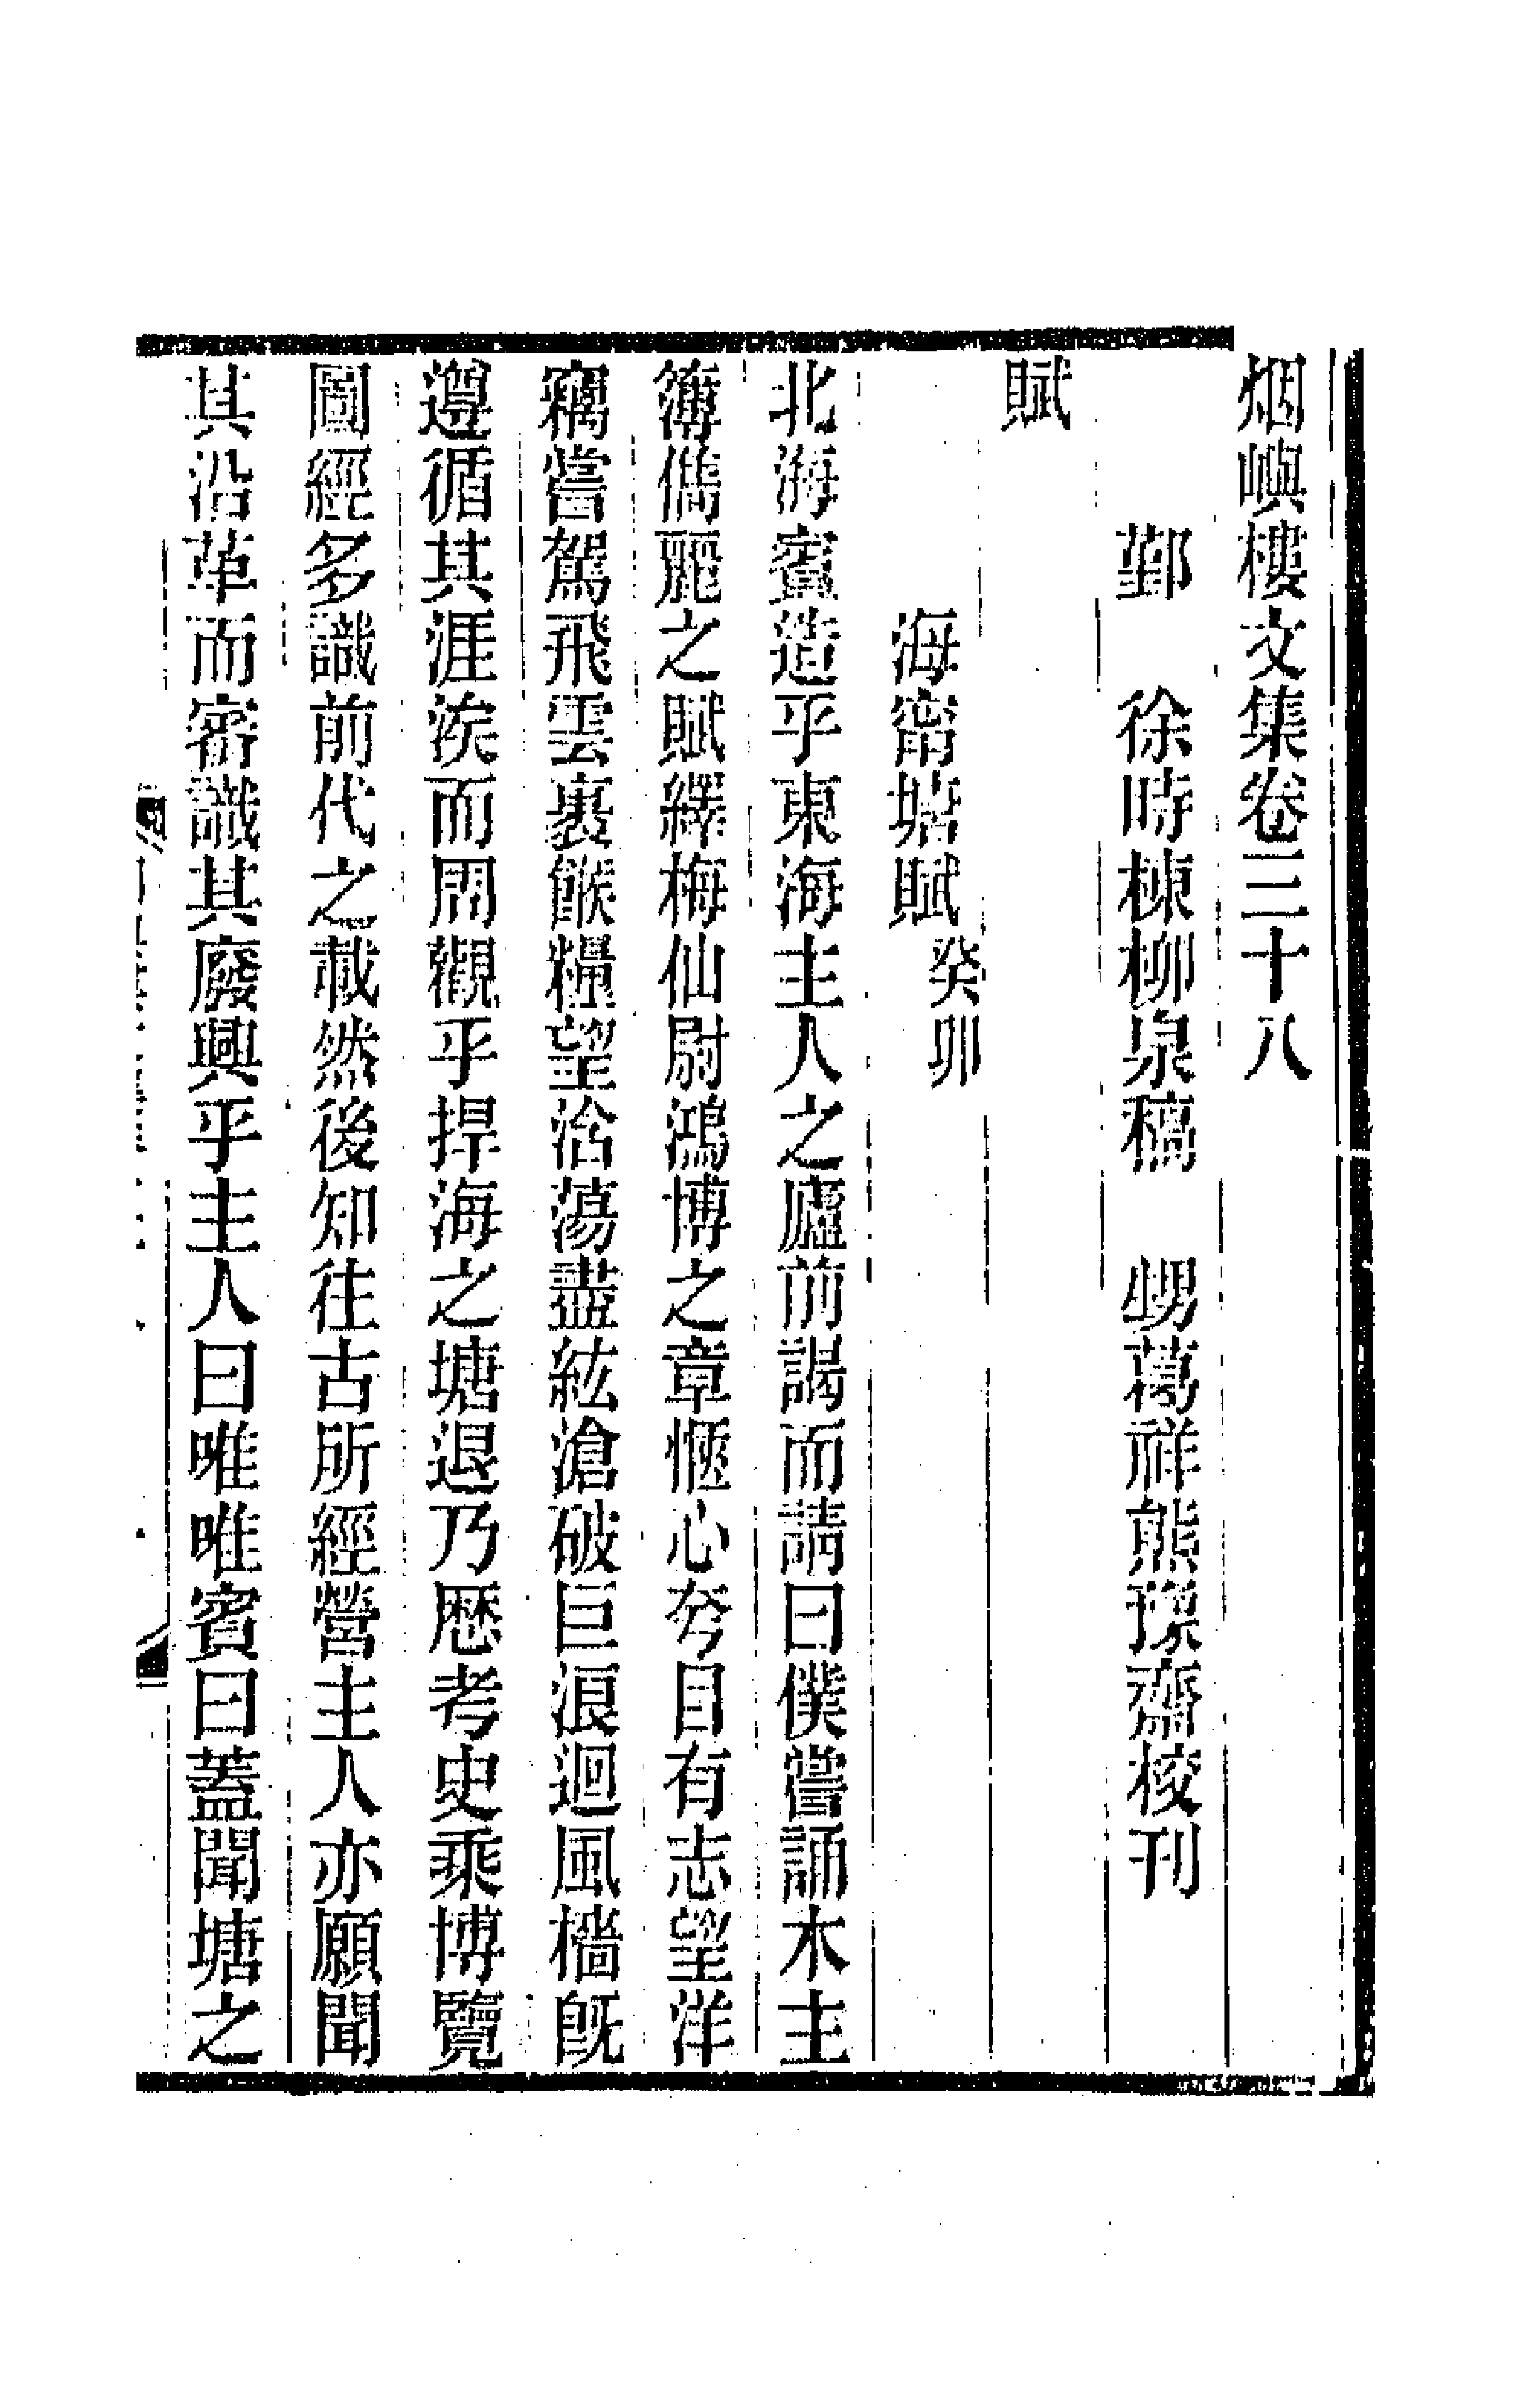 烟嶼樓文集卷三十八
鄞　徐時棟柳泉稿　甥葛祥熊䂊齋校刊
賦
海甯塘賦癸卯
北海賓造乎東海主人之廬前謁而請曰僕嘗誦木主
簿儁麗之賦繹梅仙尉鴻博之章愜心夸目有志望洋
竊嘗駕飛雲裹餱糧望浛蕩盡紘滄破巨浪迴風檣旣
遵循其涯涘而周觀乎捍海之塘退乃歷考史乘博覽
圖經多識前代之載然後知往古所經營主人亦願聞
其沿革而審識其廢興乎主人曰唯唯賓曰蓋聞塘之